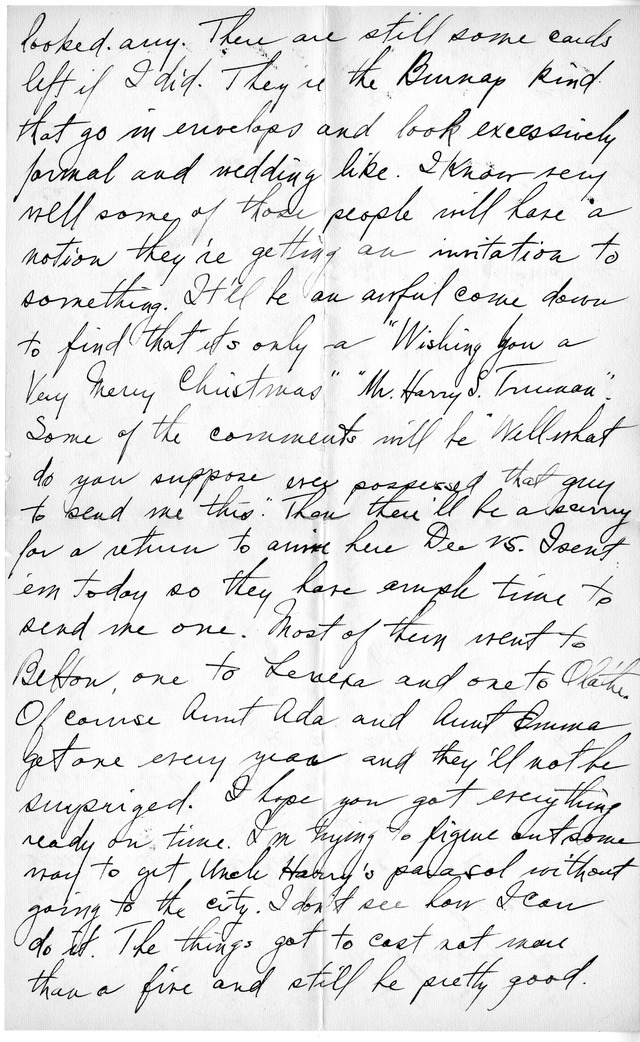 looked any. There are still some cards
left if I did. They're the Burnap kind
that go in envelops and look excessively
formal and wedding like. I know very
well some of those people will have a
notion they're getting an invitation to
something. It'll be an awful come down
to find that it's only a "Wishing you a
Very Merry Christmas" "Mr. Harry S. Truman".
Some of the comments will be "Well what
do you suppose ever possessed that guy
to send me this." Then there'll be a scurry
for a return to arrive here Dec 25. I sent
'em today so they have ample time to
send me one. Most of them went to
Belton, one to and one to Olathe.
Of course Aunt Ada and Aunt Emma
get one every year and they'll not be
surprized. I hope you got everything
ready on time. I'm trying to figure out some
way to get Uncle Harry's parasol without
going to the city. I don't see how I can
do it. The things got to cost not more
than a five and still be pretty good.